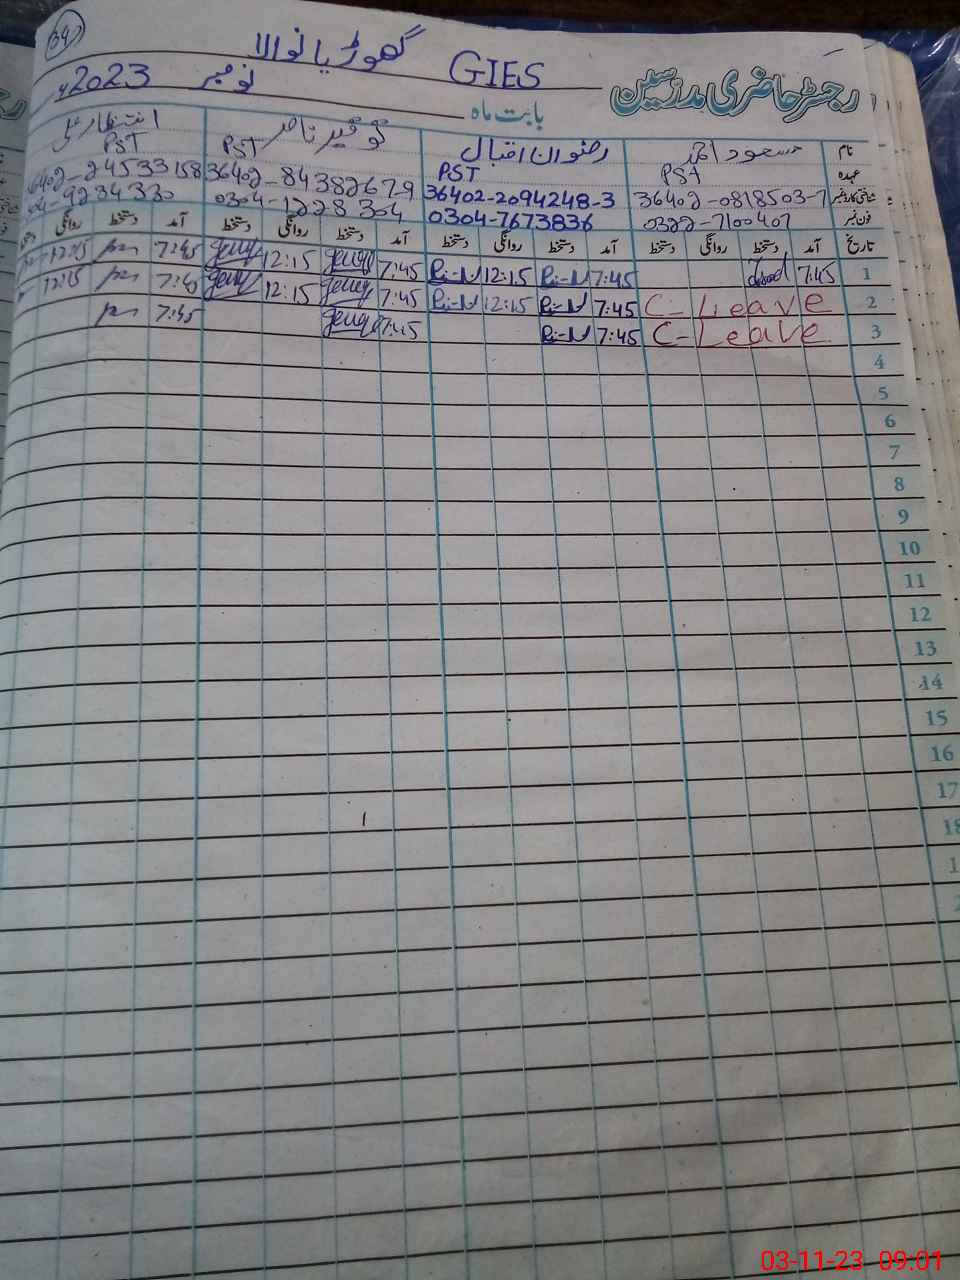 39
گھوڑیانوالا GIES
رجسٹر حاضری مدرسین
بابت ماہ نومبر 2023ء
نام مسعود احمد رضوان اقبال توقیر ناصر انتظار علی
عہدہ PST PST PST PST
شناختی کارڈ نمبر 36402-0818503-7 36402-2094248-3 36402-8438267-9 36402-24533158
فون نمبر 0322-7100407 0304-7673836 0304-1228304
تاریخ آمد دستخط روانگی دستخط آمد دستخط روانگی دستخط آمد دستخط روانگی دستخط آمد دستخط روانگی
1 7:45 7:45 12:15 7:45 12:15 7:45 12:15
2 C-Leave 7:45 12:15 7:45 12:15 7:45 12:15
3 C-Leave 7:45 7:45 7:45
4
5
6
7
8
9
10
11
12
13
14
15
16
17
18
03-11-23 09:01